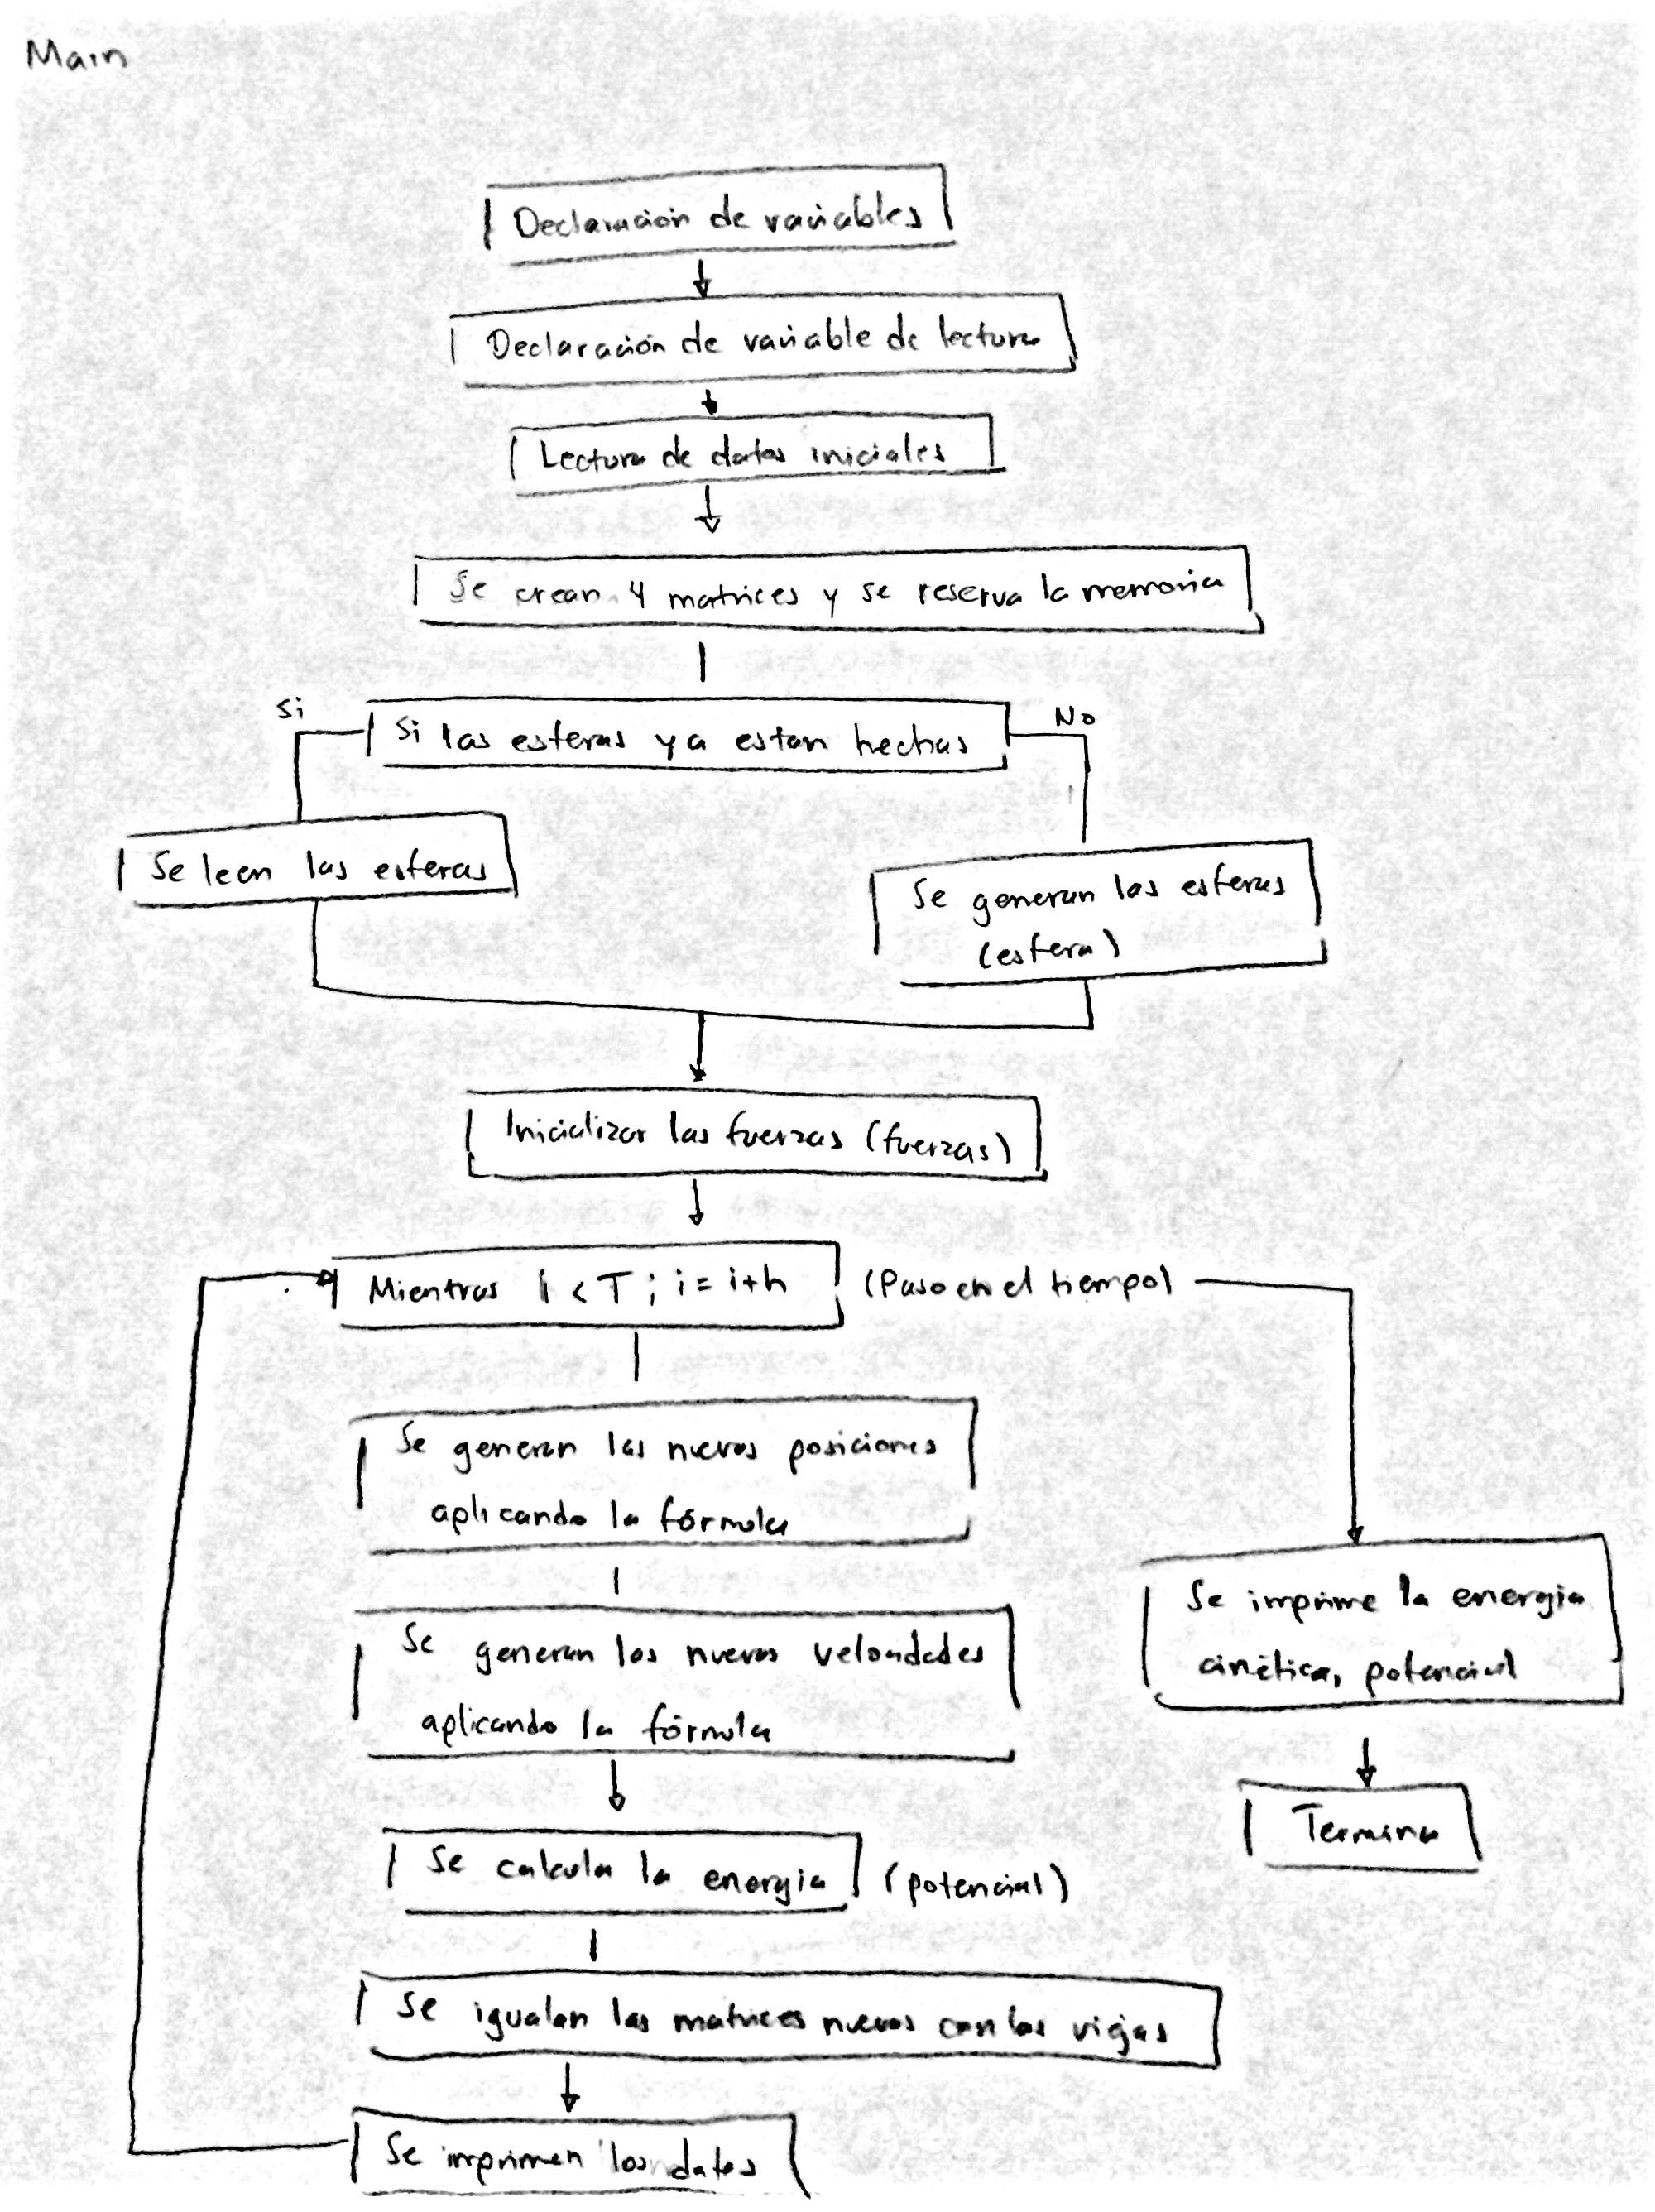 Main
Declaración de variables
Declaración de variable de lectura
Lectura de datos iniciales
Se crean 4 matrices y se reserva la memoria
Si
Si las esferas ya estan hechas
No
Se leen las esferas
Se generan las esferas
(esfera)
Inicializar las fuerzas (fuerzas)
Mientras i < T ; i = i+h
(Paso en el tiempo)
Se generan las nuevas posiciones
aplicando la fórmula
Se generan las nuevas velocidades
aplicando la fórmula
Se imprime la energia
cinética, potencial
Termina
Se calcula la energia
(potencial)
Se igualan las matrices nuevas con las viejas
Se imprimen los datos